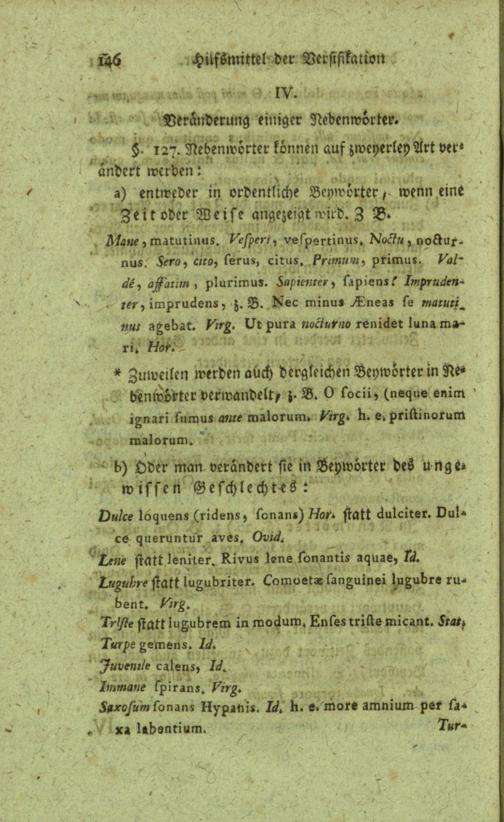 146 Hilfsmittel der Versifikation
IV.
Veränderung einiger Nebenwörter.
§. 127. Nebenwörter können auf zweyerley Art ver=
ändert werden:
a) entweder in ordentliche Beywörter, wenn eine
Zeit oder Weise angezeigt wird. Z B.
Mane, matutinus. Veſperi, veſpertinus. Noctu, noctur-
nus. Sero, cito, ſerus, citus. Primum, primus. Val-
dé, affatim, plurimus. Sapienter, ſapiens: Impruden-
ter, imprudens, z. B. Nec minus Æneas ſe matuti-
nus agebat. Virg. Ut pura nocturno renidet luna ma-
ri. Hor.
* Zuweilen werden auch dergleichen Beywörter in Ne=
benwörter verwandelt, z. B. O ſocii, (neque enim
ignari ſumus ante malorum. Virg. h. e. priſtinorum
malorum.
b) Oder man verändert sie in Beywörter des unge=
wissen Geschlechtes:
Dulce loquens (ridens, ſonans) Hor. statt dulciter. Dul-
ce queruntur aves. Ovid.
Lene statt leniter. Rivus lene ſonantis aquae, Id.
Lugubre statt lugubriter. Comoetæ ſanguinei lugubre ru-
bent. Virg.
Triſte statt lugubrem in modum. Enſes triſte micant. Stat.
Turpe gemens. Id.
Juvenile calens, Id.
Immane ſpirans. Virg.
Saxoſum ſonans Hypanis. Id. h. e. more amnium per ſa-
xa labentium.
Tur-